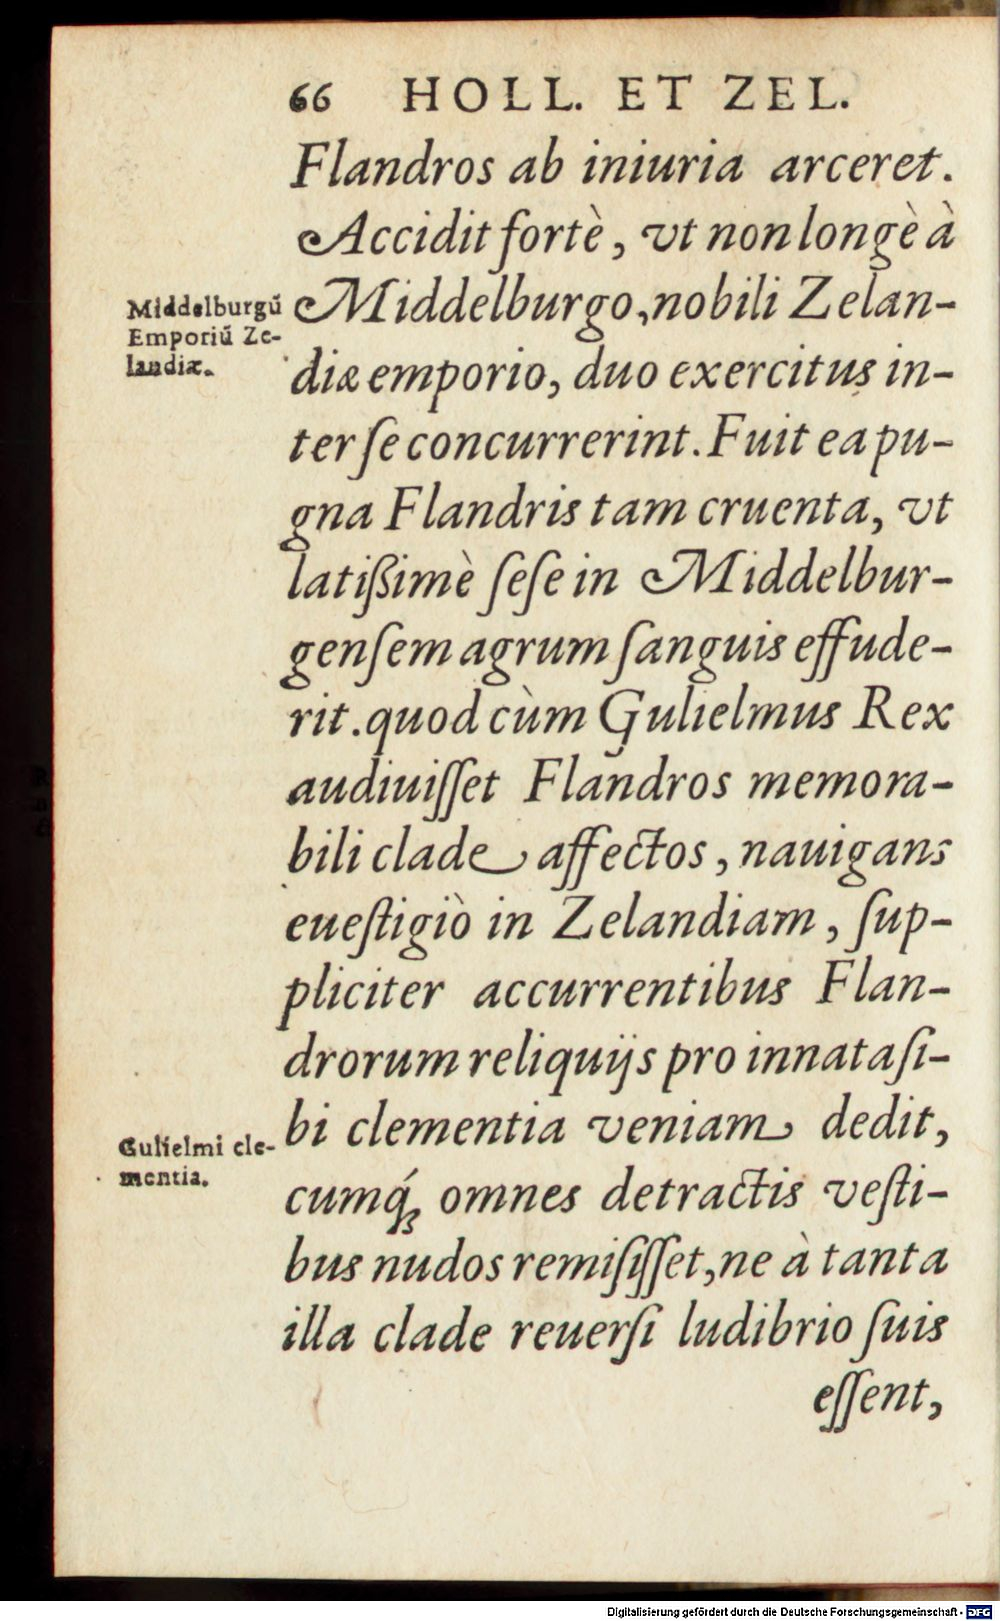 66 HOLL. ET ZEL.
Flandros ab iniuria arceret.
Accidit fortè, vt non longè à
Middelburgũ
Emporiũ Ze-
landiæ.
Middelburgo, nobili Zelan-
diæ emporio, duo exercitus in-
ter ſe concurrerint. Fuit ea pu-
gna Flandris tam cruenta, vt
latißimè ſeſe in Middelbur-
genſem agrum ſanguis effude-
rit. quod cùm Gulielmus Rex
audiuiſſet Flandros memora-
bili clade affectos, nauigans
eueſtigiò in Zelandiam, ſup-
pliciter accurrentibus Flan-
drorum reliquijs pro innata ſi-
Gulielmi cle-
mentia.
bi clementia veniam dedit,
cumq́ꝫ omnes detractis veſti-
bus nudos remiſiſſet, ne à tanta
illa clade reuerſi ludibrio ſuis
eſſent,
Digitalisierung gefördert durch die Deutsche Forschungsgemeinschaft - DFG